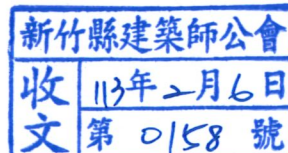 新竹縣建築師公會
收文
113年2月6日
第 0158 號